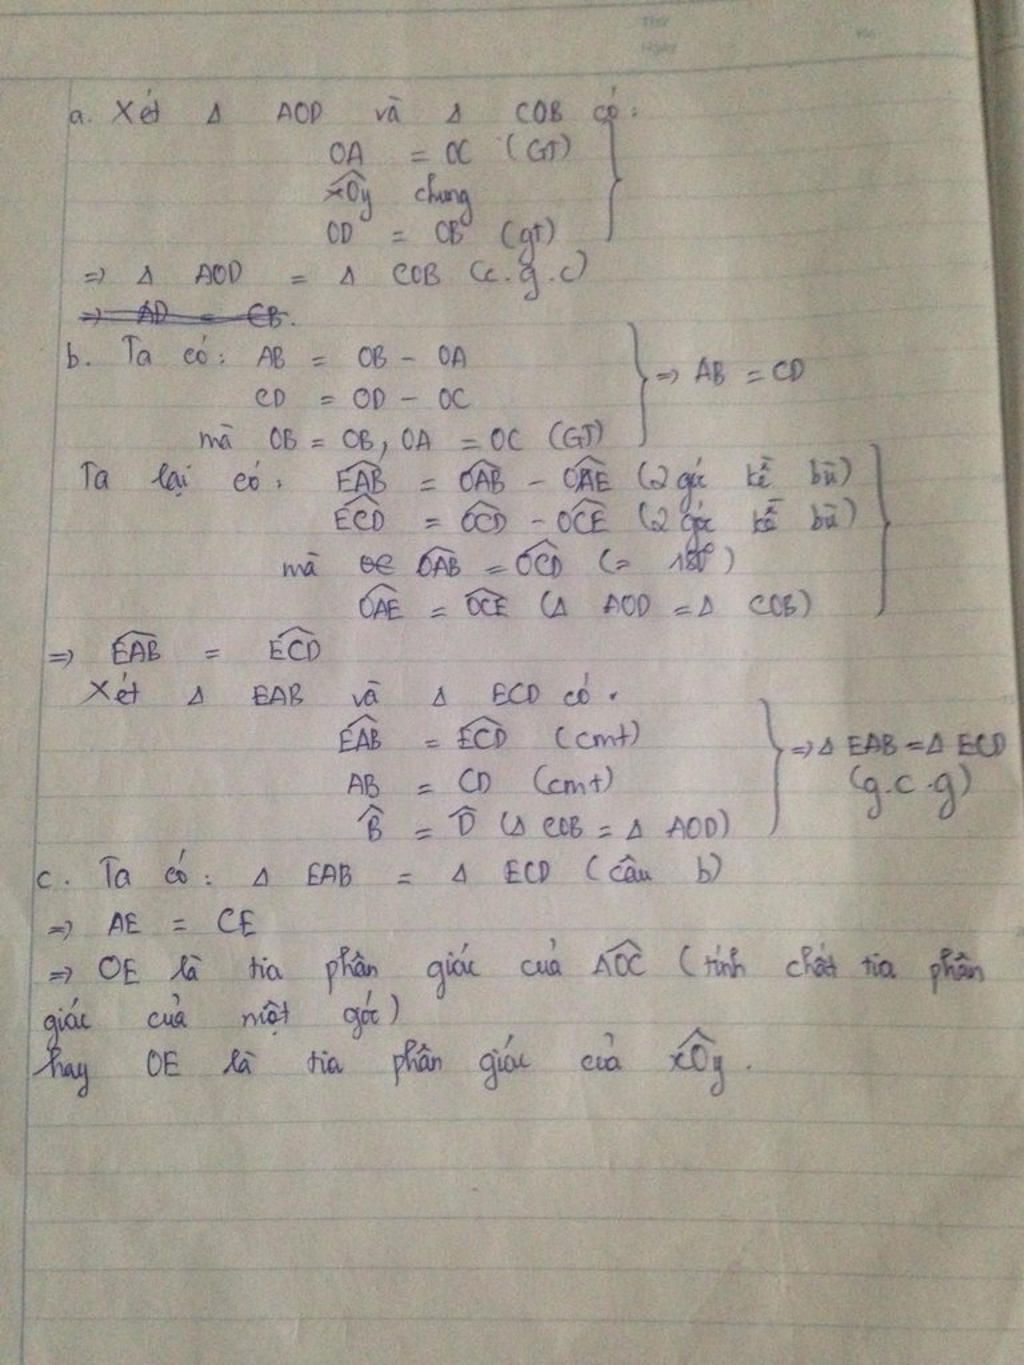 Thứ
Ngày
a. Xét Δ AOD và Δ COB có:
OA = OC (GT)
xOy chung
OD = OB (gt)
=> Δ AOD = Δ COB (c.g.c)
=> AD = CB.
b. Ta có: AB = OB - OA
CD = OD - OC
=> AB = CD
mà OB = OB, OA = OC (GT)
Ta lại có: EAB = OAB - OAE (2 góc kề bù)
ECD = OCD - OCE (2 góc kề bù)
mà OC OAB = OCD (= 180°)
OAE = OCE (Δ AOD = Δ COB)
=> EAB = ECD
Xét Δ EAB và Δ ECD có.
EAB = ECD (cmt)
=> Δ EAB = Δ ECD
AB = CD (cmt)
(g.c.g)
B = D (Δ COB = Δ AOD)
c. Ta có: Δ EAB = Δ ECD (câu b)
=> AE = CE
=> OE là tia phân giác của AOC (tính chất tia phân
giác của một góc)
hay OE là tia phân giác của xOy.